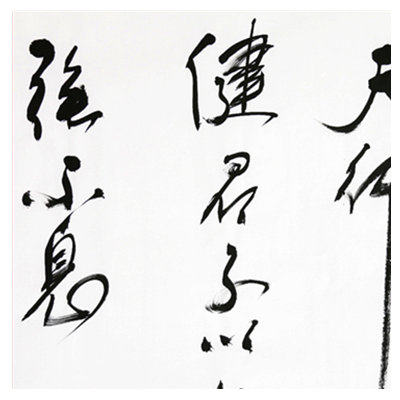 天行
健君子以
強不息